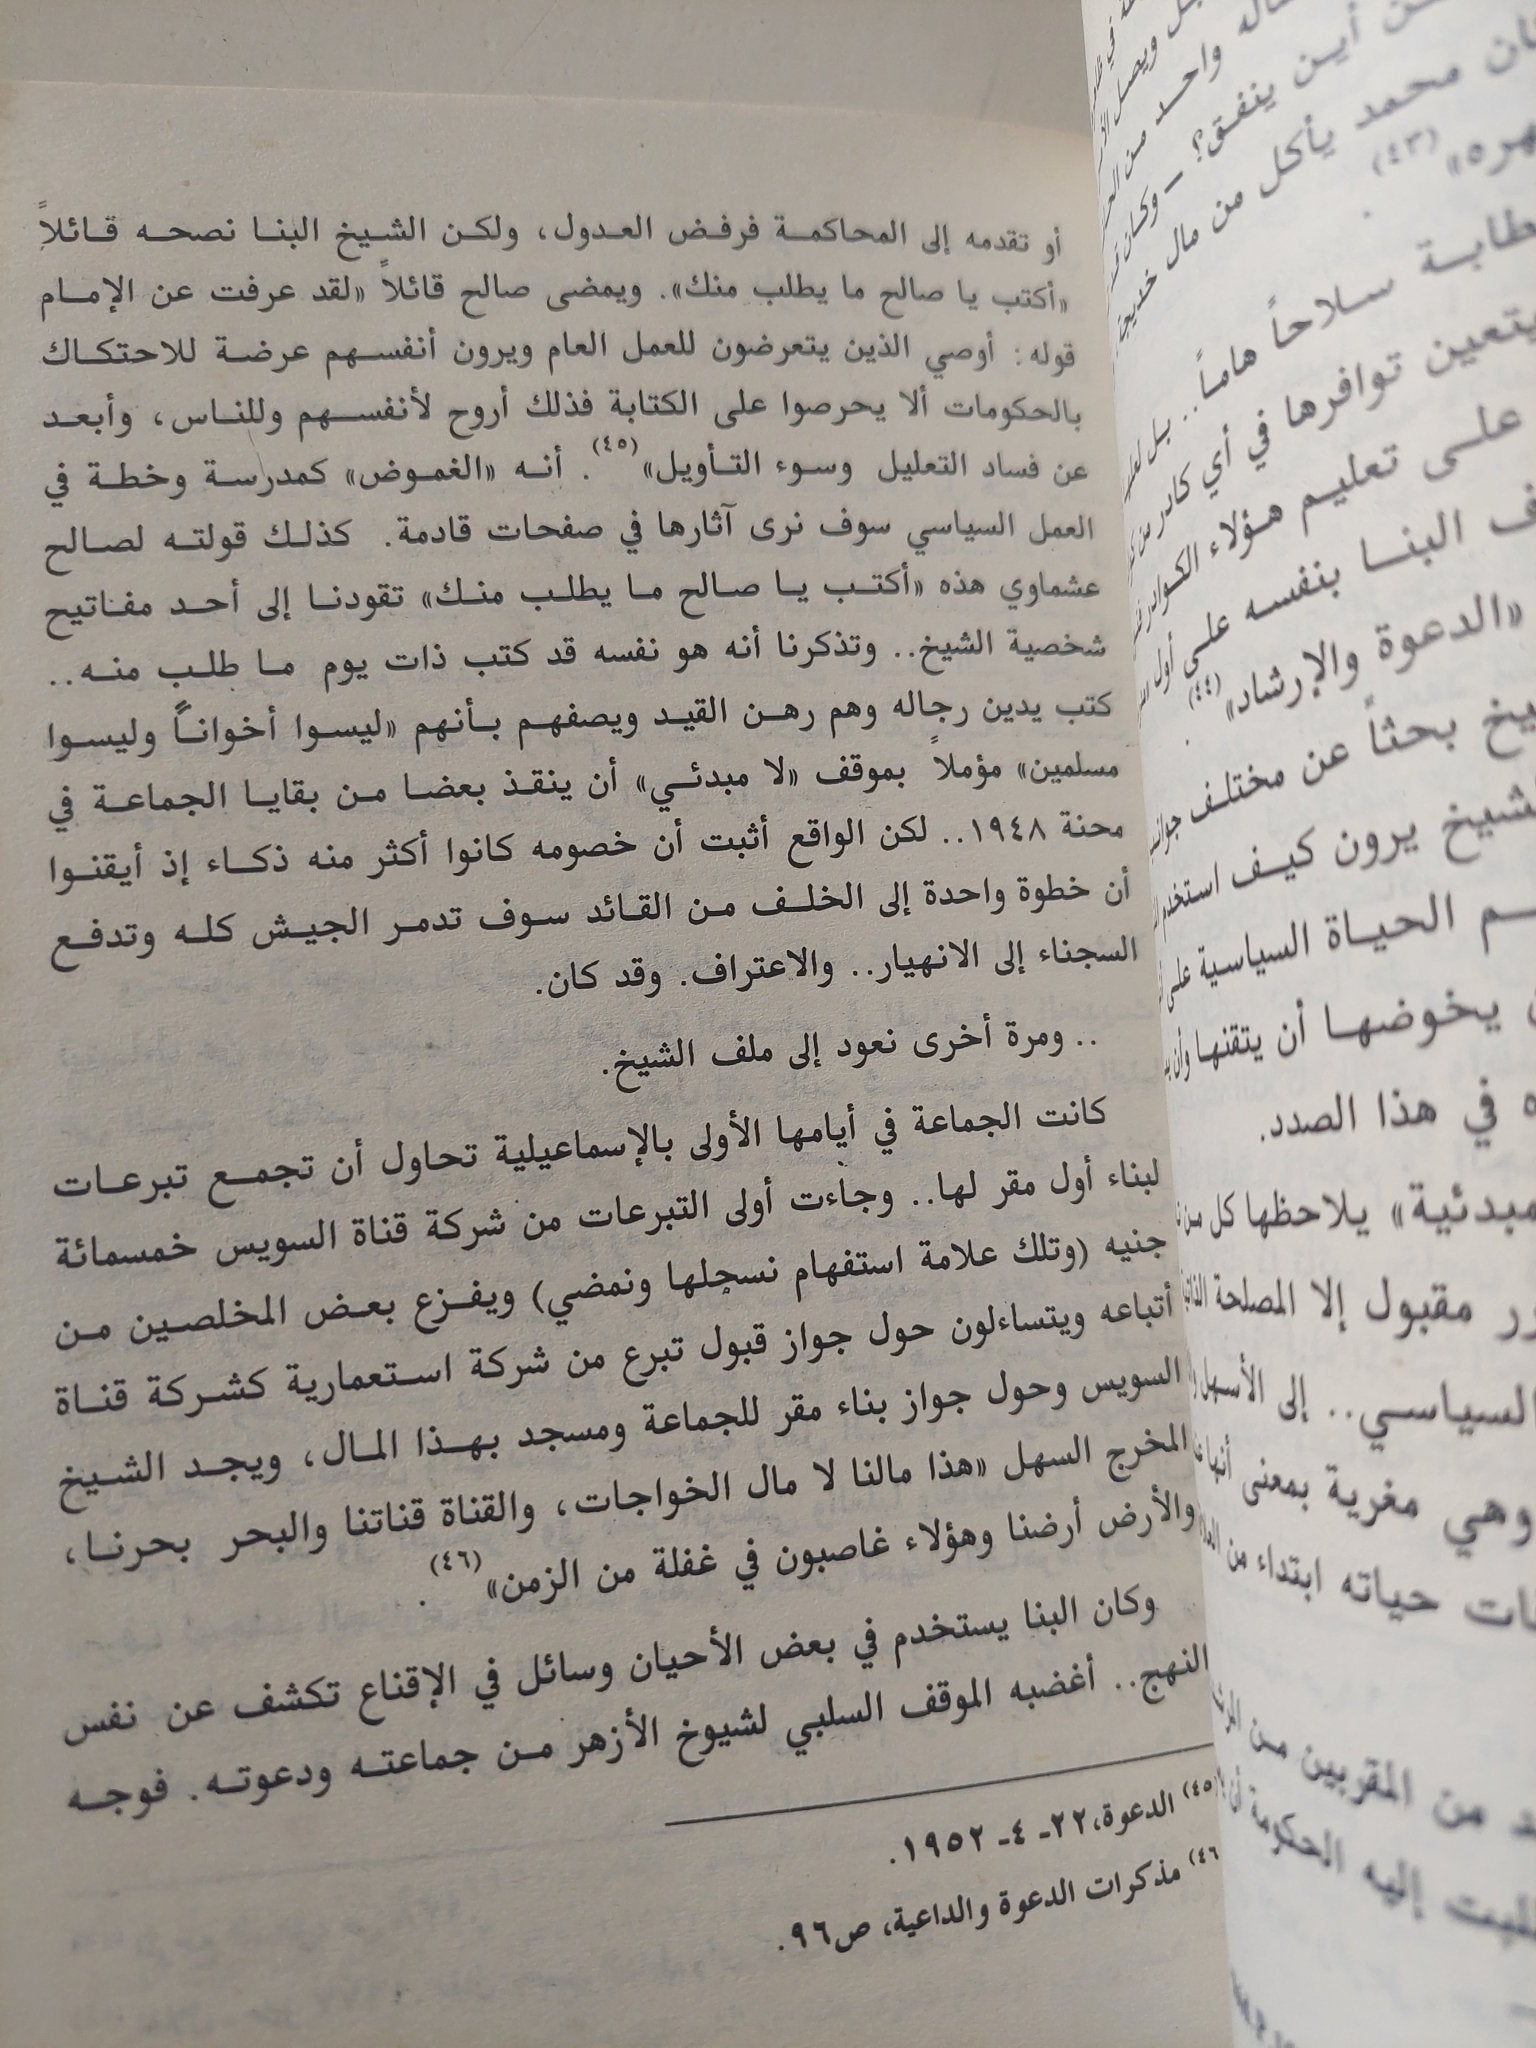 أو تقدمه إلى المحاكمة فرفض العدول، ولكن الشيخ البنا نصحه قائلاً
«أكتب يا صالح ما يطلب منك». ويمضى صالح قائلاً «لقد عرفت عن الإمام
قوله: أوصي الذين يتعرضون للعمل العام ويرون أنفسهم عرضة للاحتكاك
بالحكومات ألا يحرصوا على الكتابة فذلك أروح لأنفسهم وللناس، وأبعد
عن فساد التعليل وسوء التأويل»(٤٥). أنه «الغموض» كمدرسة وخطة في
العمل السياسي سوف نرى آثارها في صفحات قادمة. كذلك قولته لصالح
عشماوي هذه «أكتب يا صالح ما يطلب منك» تقودنا إلى أحد مفاتيح
شخصية الشيخ.. وتذكرنا أنه هو نفسه قد كتب ذات يوم ما طلب منه..
كتب يدين رجاله وهم رهن القيد ويصفهم بأنهم «ليسوا أخواناً وليسوا
مسلمين» مؤملاً بموقف «لا مبدئي» أن ينقذ بعضا من بقايا الجماعة في
محنة ١٩٤٨.. لكن الواقع أثبت أن خصومه كانوا أكثر منه ذكاء إذ أيقنوا
أن خطوة واحدة إلى الخلف من القائد سوف تدمر الجيش كله وتدفع
السجناء إلى الانهيار.. والاعتراف. وقد كان.
.. ومرة أخرى نعود إلى ملف الشيخ.
كانت الجماعة في أيامها الأولى بالإسماعيلية تحاول أن تجمع تبرعات
لبناء أول مقر لها.. وجاءت أولى التبرعات من شركة قناة السويس خمسمائة
جنيه (وتلك علامة استفهام نسجلها ونمضي) ويفزع بعض المخلصين من
أتباعه ويتساءلون حول جواز قبول تبرع من شركة استعمارية كشركة قناة
السويس وحول جواز بناء مقر للجماعة ومسجد بهذا المال، ويجد الشيخ
المخرج السهل «هذا مالنا لا مال الخواجات، والقناة قناتنا والبحر بحرنا،
والأرض أرضنا وهؤلاء غاصبون في غفلة من الزمن»(٤٦).
وكان البنا يستخدم في بعض الأحيان وسائل في الإقناع تكشف عن نفس
النهج.. أغضبه الموقف السلبي لشيوخ الأزهر من جماعته ودعوته. فوجه
(٤٥) الدعوة،٢٢- ٤- ١٩٥٢.
(٤٦) مذكرات الدعوة والداعية، ص٩٦.
واحد من
أين ينفق؟ – وكان
محمد يأكل من مال خديجة
(٤٣)
سلاحاً هاماً.. بل
يتعين توافرها في أي كادر من
على تعليم هؤلاء الكوادر
البنا بنفسه على أول
«الدعوة والإرشاد»(٤٤).
بحثاً عن مختلف
يرون كيف استخدم
الحياة السياسية على
يخوضها أن يتقنها وأن
في هذا الصدد.
يلاحظها كل من
مقبول إلا المصلحة
السياسي.. إلى الأسهل
وهي مغرية بمعنى أنها
حياته ابتداء من
من المقربين من
إليه الحكومة أن